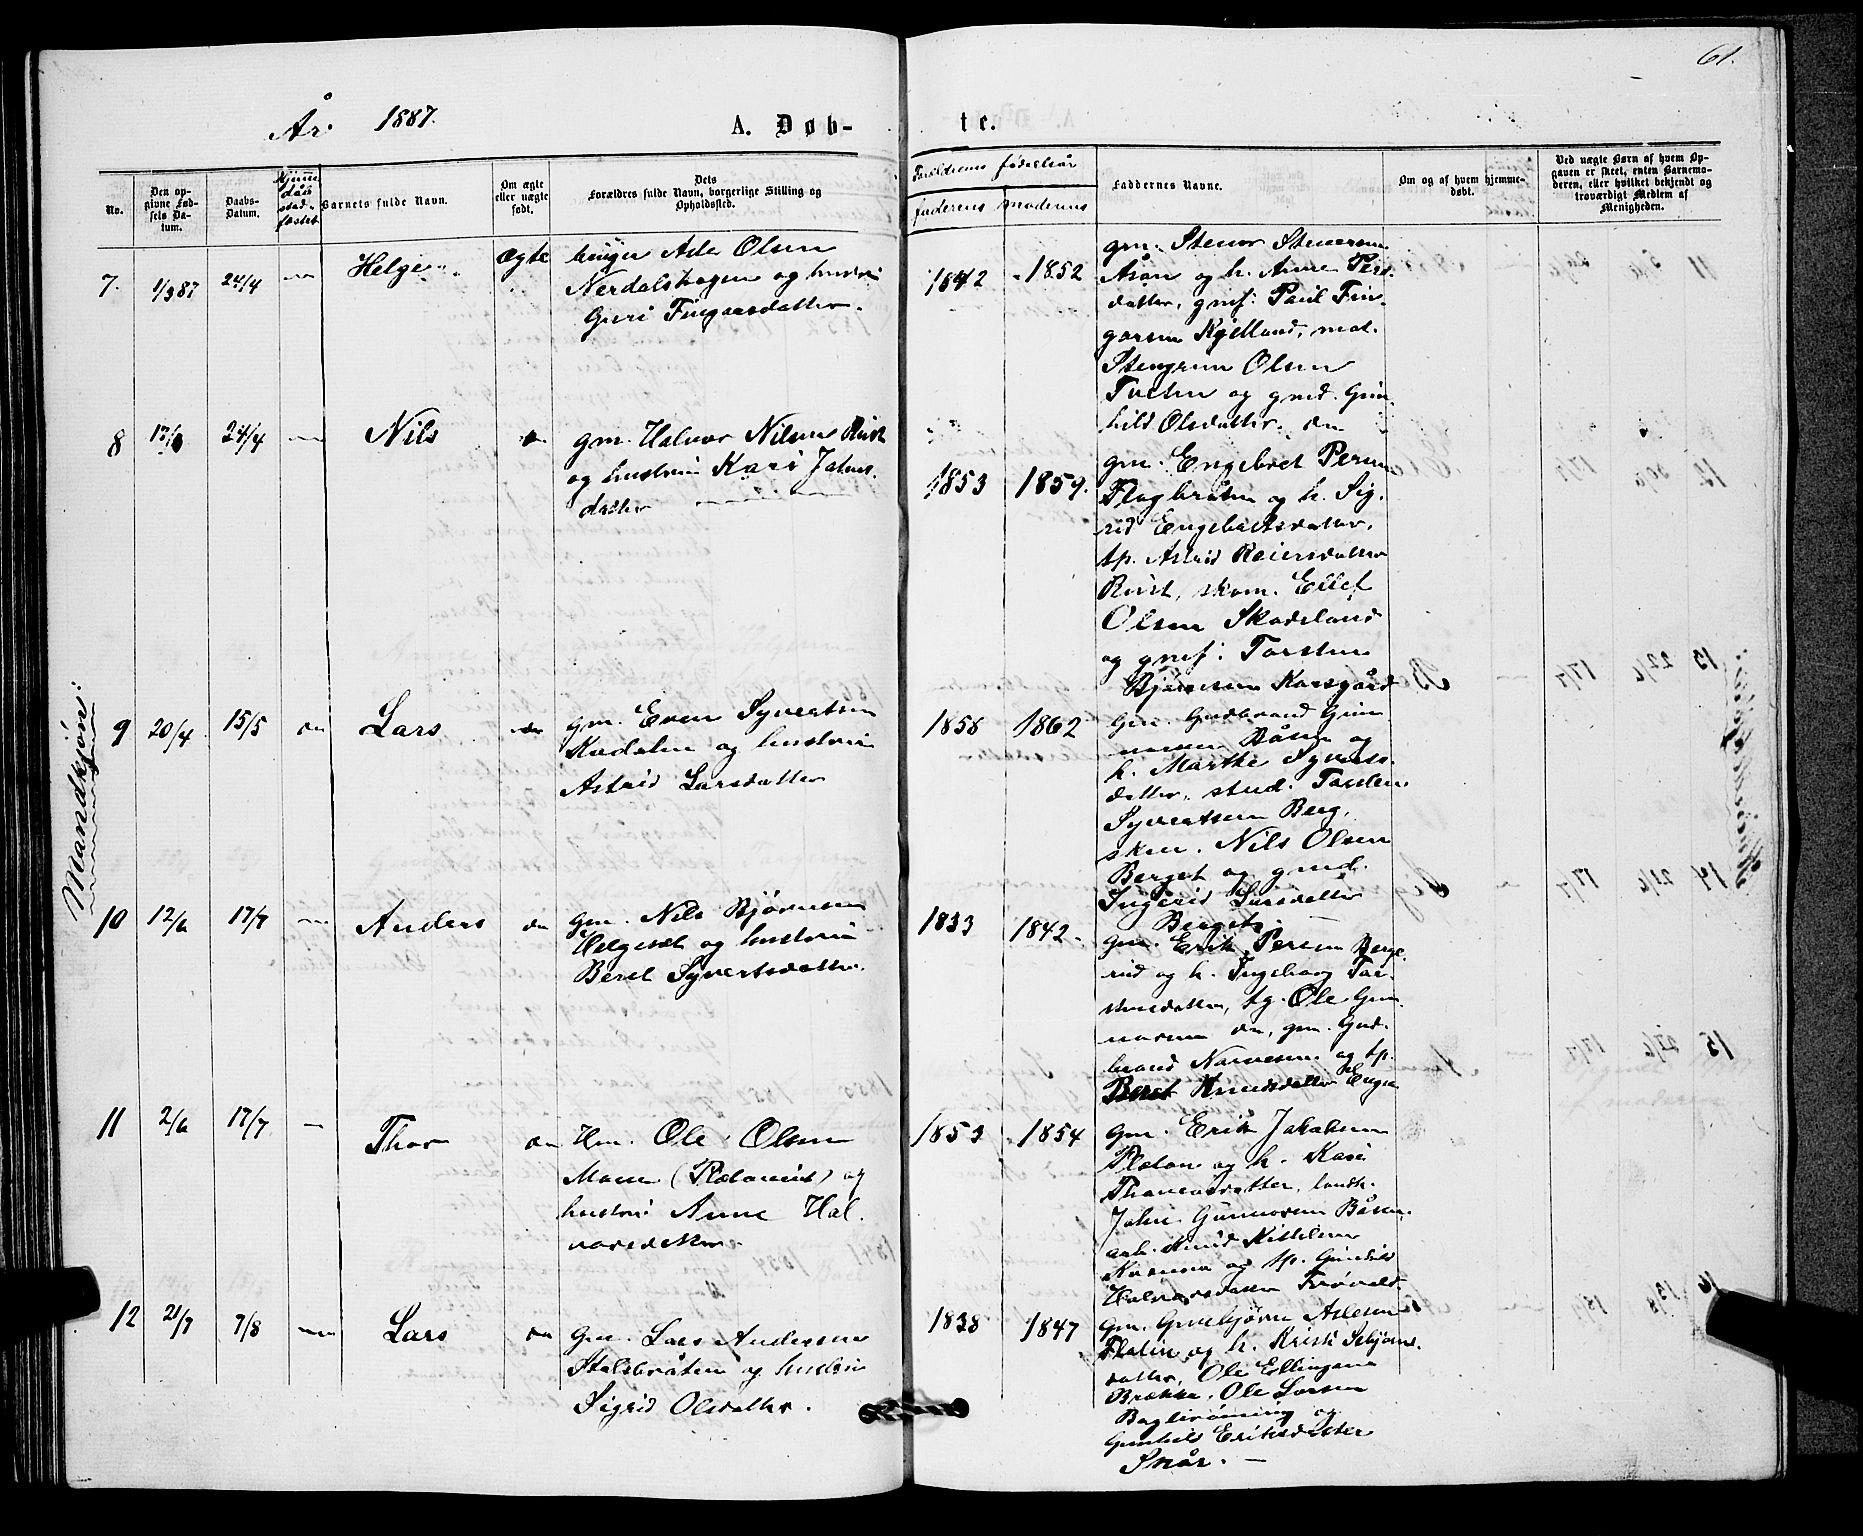 61.
År 1887.
A. Døb-
te.
No.
Den op-
givne Fød-
sels Da-
tum.
Daabs-
Datum.
Hjemme
dåb
stad-
fæstet
Barnets fulde Navn.
Om ægte
eller nægte
født.
Dets
Forældres fulde Navn, borgerlige Stilling og
Opholdssted.
Forældrenes fødselsår
faderens moderens
Faddernes Navne.
Om og af hvem hjemme-
døbt.
Ved nægte Børn af hvem Op-
gaven er skeet, enten Barnemo-
deren, eller hvilket bekjendt og
troværdigt Medlem af
Menigheden.
Mandkjøn:
7. 1/3 87 24/4 — Helge Ægte
Asle Olsen
Nerdalshagen og hustru
Guri Fingarsdatter.
1842 1852
gm. Stener Stenersen
Åsån og h. Anne Pers
datter, gmf. Paul Fin-
garsen Kjelland, mat.
Stengrim Olsen
Tveten og gmd. Gun
hild Olsdatter. dm
8 24/4 — Nils
gm. Halvor Nilsen Rust
og hustru Kari Johns
datter
1853 1859.
gm. Engebret Persen
Flagbråten og h. Sig-
rid Engebretsdatter,
tp. Astrid Reiersdatter
Rust, skom. Ellef
Olsen Skadeland
og gmf. Torsten
Bjørnsen Karsgård
9 20/4 15/5 do Lars do
gm. Even Syvertsen
Kadalen og hustru
Astrid Larsdatter
1858 1862
gm. Gudbrand Gun
narsen Båsen og
h. Marthe Syverts-
datter, stud. Torsten
Syvertsen Berg,
Nils Olsen
Berget og gmd.
Ingerid Larsdatter
Berget.
10 12/6 17/7 — Anders do
gm. Nils Bjørnsen
Helgeset og hustru
Beret Syvertsdatter.
1833 1842.
gm. Erik Persen Berge
rud og h. Ingeborg Tor-
stensdatter, tg. Ole Gun
narsen do, gm. Gud-
brand Narvesen og tp.
Beret Knudsdatter Engen
11 2/6 17/7 — Thor do
Hm. Ole Olsen
Moen (Plataneiet) og
hustru Anne Hal-
vorsdatter.
1853 1854
gm. Erik Jakobsen
Platon og h. Kari
Thoresdatter, landh.
John Gunnarsen Båsen,
arb. Knud Kittilsen
og tp. Gunhild
Halvorsdatter
12 21/7 7/8 — Lars do
Gm. Lars Andersen
Stalsbråten og hustru
Sigrid Olsdatter.
1838 1847
gm. Gunbjørn Aslesen
Flatin og h. Kristi
datter, Ole Ellingsen
Brække, Ole Larsen
og
Gunhild Eriksdatter
Snår. —